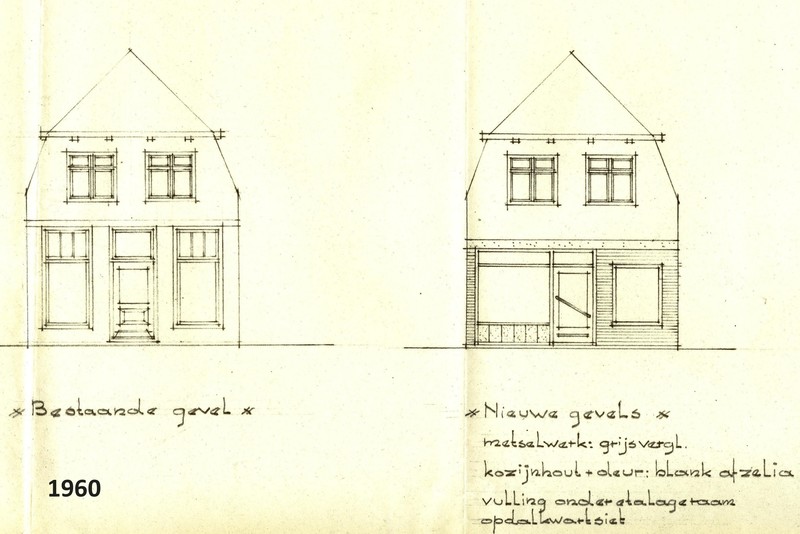 * Bestaande gevel *
1960
* Nieuwe gevels *
metselwerk: grijsvergl.
kozijnhout + deur: blank afzelia
vulling onder etalageraam
opdalkwartsiet